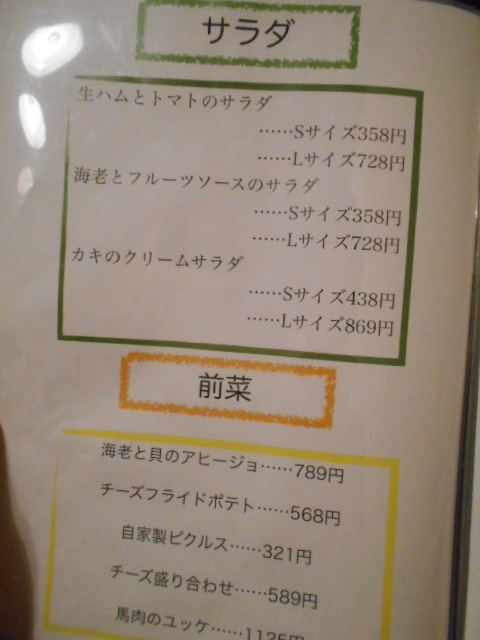 サラダ
生ハムとトマトのサラダ
……Sサイズ358円
……Lサイズ728円
海老とフルーツソースのサラダ
……Sサイズ358円
……Lサイズ728円
カキのクリームサラダ
……Sサイズ438円
……Lサイズ869円
前菜
海老と貝のアヒージョ……789円
チーズフライドポテト……568円
自家製ピクルス……321円
チーズ盛り合わせ……589円
馬肉のユッケ……1125円